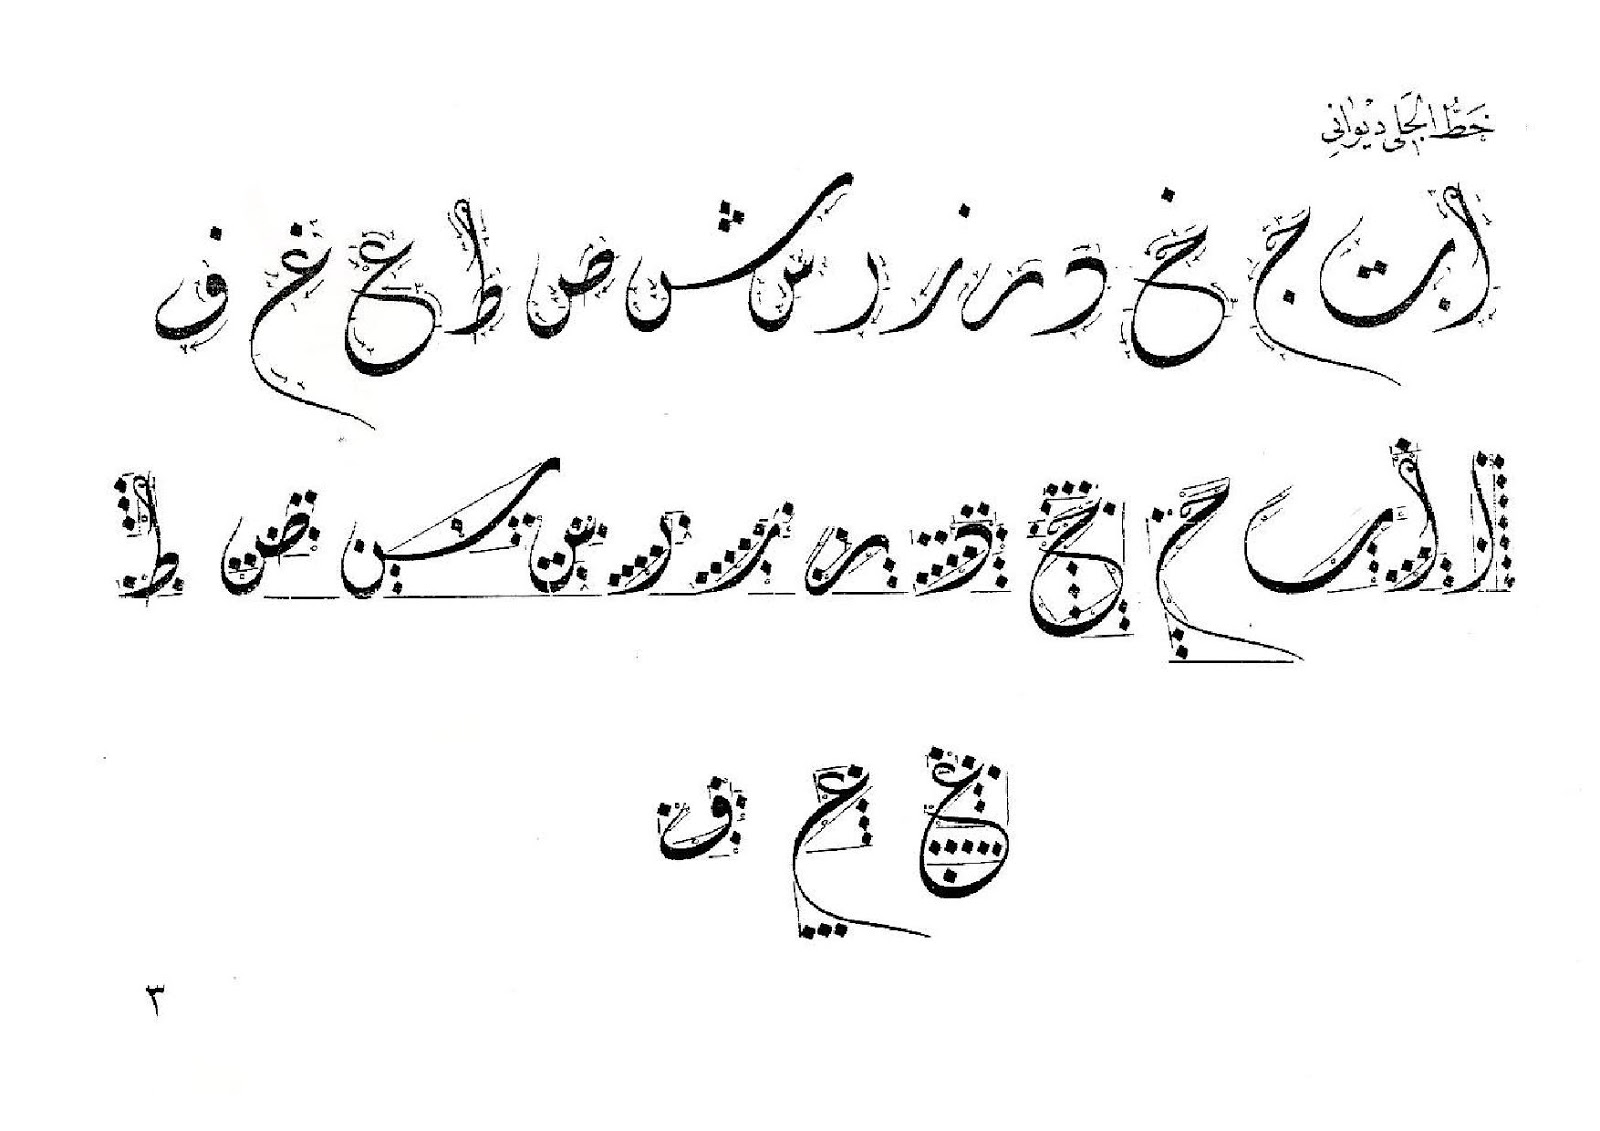 خَطُّ الجَلِي دِيْوَانِي
ا ب ت ج خ د ر ز ر س ش ص ط ع غ ف
ا ا ب ج ج د ر ر ر س س ص ط
ع ع ف
٣